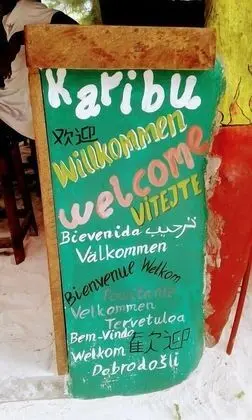 Karibu
欢迎
Willkommen
Welcome
VÍTEJTE
Bievenida ترحيب
Välkommen
Bienvenue Welkom
Velkommen
Tervetuloa
Bem-Vindo
Welkom 歓迎
Dobrodošli